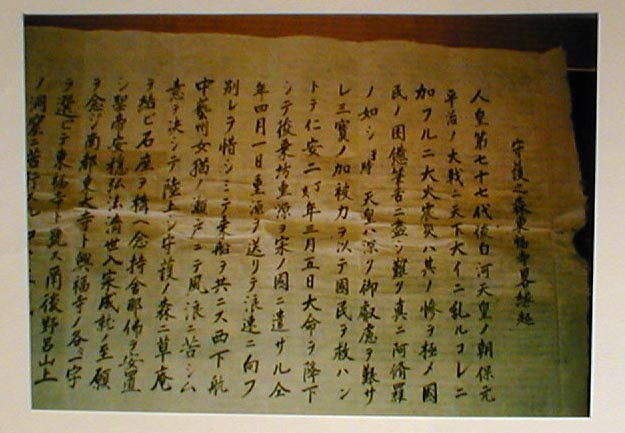 守護之森東福寺畧縁起
人皇第七十七代後白河天皇ノ朝保元
平治ノ大戦ニ天下大イニ乱ルコレニ
加フルニ大火震災ハ其ノ惨ヲ極メ国
民ノ困億筆舌ニ盡シ難ク真ニ阿脩羅
ノ如シ時天皇ハ深ク御叡慮ヲ艱サ
レ三寳ノ加被力ヲ以テ國民ヲ救ハン
トテ仁安二丁亥年三月五日大命ヲ降下
シテ俊乗坊重源ヲ宋ノ國ニ遣サル仝
年四月一日重源ヲ送リテ浪速ニ向フ
別レヲ惜シミテ乗船ヲ共ニス西下航
中藝州女猫ノ瀬戸ニテ風浪ニ苦シム
意ヲ決シテ陸上シ守護ノ森ニ草庵
ヲ結ビ石座ヲ構ヘ念持舎那佛ヲ安置
シ聖帝安穏弘法済世入宋成就ノ至願
ヲ念ジ南都東大寺ト興福寺ノ各一字
ヲ選ビテ東福寺ト号ス爾後野呂山上
ノ洞窟ニ苦行